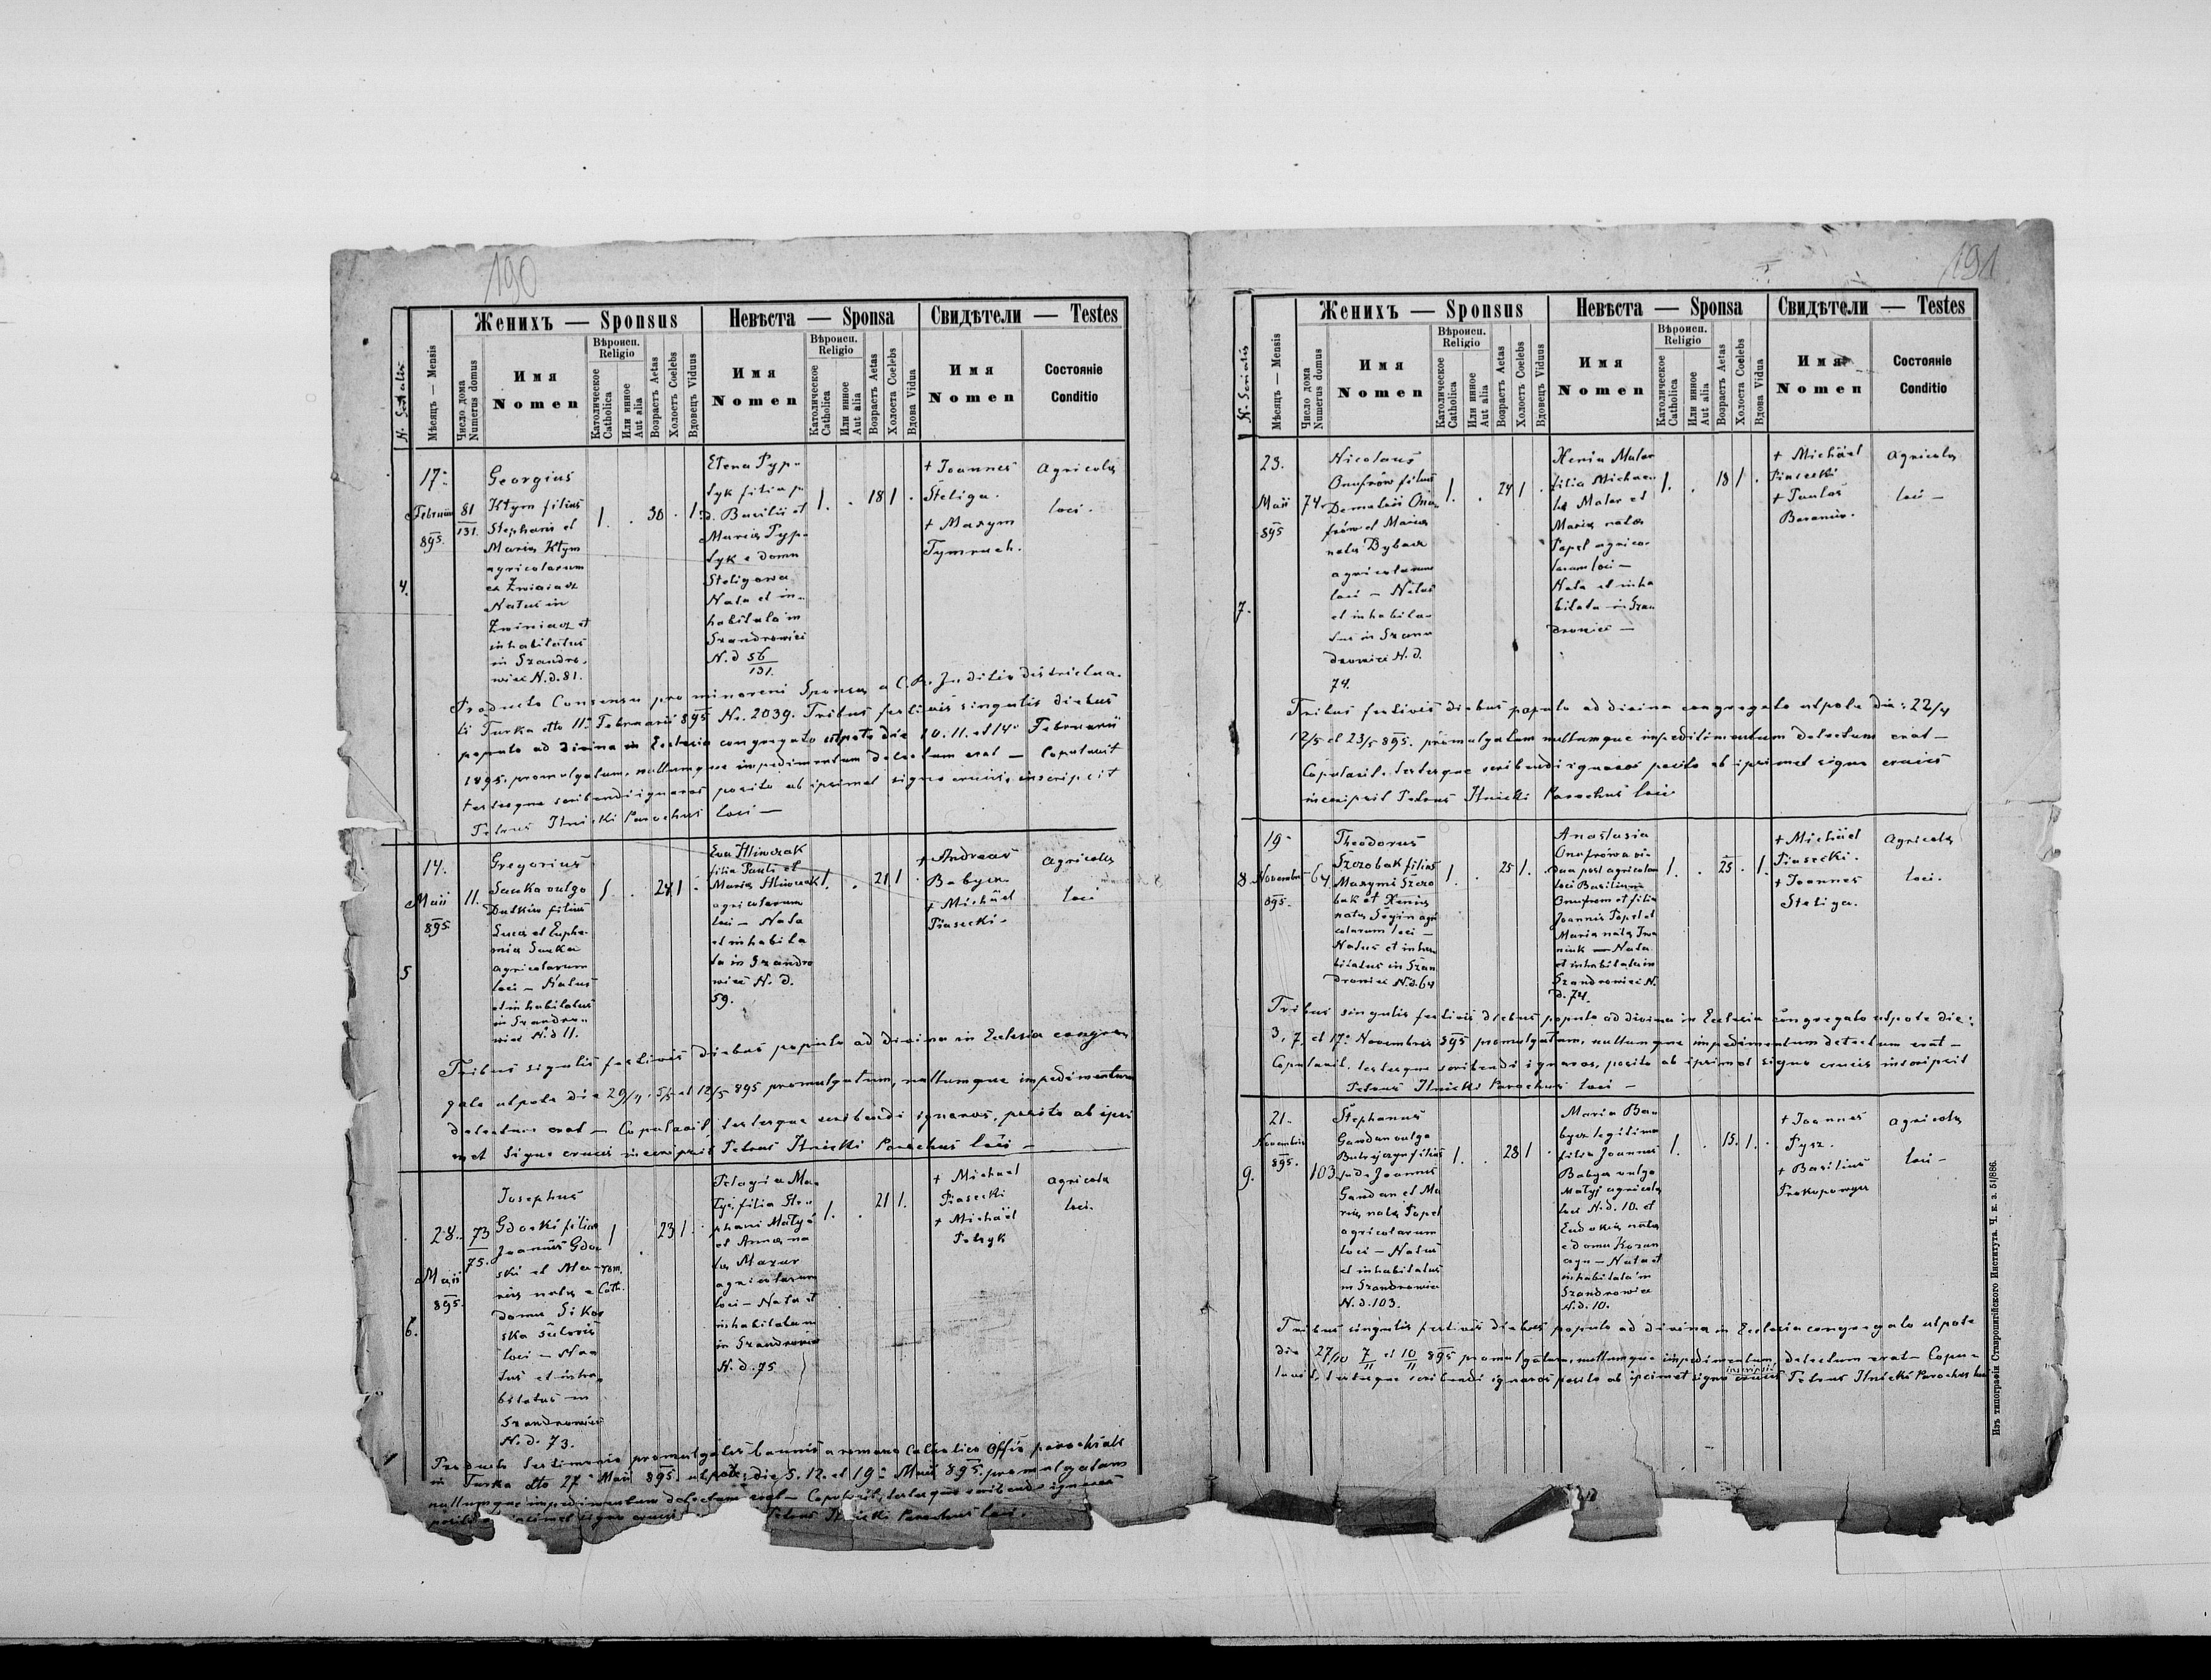 190
Женихъ — Sponsus
Невѣста — Sponsa
Свидѣтели — Testes
Мѣсяцъ — Mensis
Число дома
Numerus domus
Имя
Nomen
Вѣроисп.
Religio
Католическое
Catholica
Или инное
Aut alia
Возрастъ Aetas
Холостъ Coelebs
Вдовецъ Viduus
Имя
Nomen
Вѣроисп.
Religio
Католическое
Catholica
Или инное
Aut alia
Возрастъ Aetas
Холоста Coelebs
Вдова Vidua
Имя
Nomen
Состояніе
Conditio
4.
17.
Februarii
895.
81
131.
Georgius
Kłym filius
Stephani et
Maria Kłym
agricolarum
ex
Natus in
et
inhabitatus
in Szandro-
wiec N.d. 81.
1. . 30 . 1.
Elena Pyp-
łyk filia p.
d. Basilii et
Maria Pyp-
łyk e domo
Steligowa
Nata et in-
habitata in
Szandrowiec
N.d 56
131.
1. . 18 1 .
+ Joannes
Steliga.
+ Maxym
Tymruch.
agricola
loci.
Producto Consensu pro minoreni Sponsa a C.R. Juditio districtua-
li Turka dto 11. Februarii 895 No. 2039. Tribus festivis singulis diebus
populo ad divina in Ecclesia congregato utpote die 10. 11. et 14. Februarii
1895. promulgatum, nullumque impedimentum detectum erat — Copulavit
testesque scribendi ignaros posito ab ipsimet signo crucis, inscripsit
Petrus Ilnicki Parochus loci —
5
14.
Maii
895.
11.
Gregorius
Sawka vulgo
Dutkiw filius
Luca et Euphe-
mia Sawka
agricolarum
loci — Natus
et inhabitatus
in Szandro-
wiec N.d 11.
1 . 24 1 .
Eva Hliwczak
filia Pauli et
Maria Hliwczak
agricolarum
loci — Nata
et inhabita
ta in Szandro
wiec N. d.
59.
1. . 21 1 .
+ Andreas
Babycz
+ Michäel
Piasecki.
agricola
loci
Tribus sigulis festivis diebus populo ad divina in Eclesia congre-
gato utpote die 29/4, 5/5 et 12/5 895 promulgatum, nullumque impedimentum
detectum erat — Copulavit, testesque scribendi ignaros, posito ab ipsi
met Signo crucis inscripsit Petrus Ilnicki Parochus loci —
6.
28.
Maii
895.
73
75.
Josephus
Gdocki filius
Joannis Gdo-
cki et Ma-
ria nata e
domo Sikor
ska
loci — Na-
tus et inha-
bitatus in
Szandrowiec
N. d. 73.
1
rom.
Cath.
. 23 1 .
Pelagia Ma-
tyj filia Ste-
phani Matyj
et Anna na
ta Mazur
agricolarum
loci — Nata et
inhabitata
in Szandrowiec
N. d. 75
1. . 21 1.
+ Michael
Piasecki
+ Michäel
Petryk
agricola
loci.
Producto testimonio promulgatis bannis a romano Catholico Offio parochiali
in Turka dto 27 Maii 895. utpote, die 5. 12. et 19. Maii 895. promulgatum
nullumque impedimentum detectum erat — Copulavit, testesque scribendi ignaros
signo crucis Petrus Ilnicki Parochus loci.
191
N. Serialis
Женихъ — Sponsus
Невѣста — Sponsa
Свидѣтели — Testes
Мѣсяцъ — Mensis
Число дома
Numerus domus
Имя
Nomen
Вѣроисп.
Religio
Католическое
Catholica
Или инное
Aut alia
Возрастъ Aetas
Холостъ Coelebs
Вдовецъ Viduus
Имя
Nomen
Вѣроисп.
Religio
Католическое
Catholica
Или инное
Aut alia
Возрастъ Aetas
Холоста Coelebs
Вдова Vidua
Имя
Nomen
Состояніе
Conditio
7.
23.
Maii
895
74.
Nicolaus
Onufrów filius
Demetrii Onu-
frów et Maria
nata Dybacz
agricolarum
loci — Natus
et inhabita-
tus in Szan-
drowiec N.d.
74.
1. . 24 1 .
Xenia Malar
filia Michae-
lis Malar et
Maria nata
Popel agrico-
larum loci —
Nata et inha
bitata in Szan
drowiec —
1. . 18 1 .
+ Michäel
Piasecki
+ Paulus
agricola
loci —
Tribus festivis diebus populo ad divina congregato utpote die: 22/4
12/5 et 23/5 895. promulgatum nullumque impedimentum detectum erat —
Copulavit. testesque scribendi ignaros posito ab ipsimet signo crucis
inscripsit Petrus Ilnicki Parochus loci
8.
19.
Novembris
895.
64
Theodorus
Szczobak filius
Maxymi Szczo
bak et Xenia
nata Segin agri
colarum loci —
Natus et inha
bitatus in Szan
drowiec N.d. 64
1. . 25 1 .
Anastasia
Onufrówa vi-
dua post agricolam
loci Basilium
Onufrow et filia
Joannis Popel et
Maria nata Iwa
niuk — Nata
et inhabitata in
Szandrowiec N.
d. 74.
1. . 25 . 1.
+ Michäel
Piasecki.
+ Joannes
Steliga.
agricola
loci.
Tribus singulis festivis diebus populo ad divina in Ecclesia congregato utpote die:
3, 7, et 17. Novembris 895 promulgatum, nullumque impedimentum detectum erat —
Copulavit, testesque scribendi ignaros, posito ab ipsimet signo crucis inscripsit
Petrus Ilnicki Parochus loci —
9.
21.
Novembris
895.
103
Stephanus
Gawdan vulgo
filius
Joannis
Gawdan et Ma
ria nata Popel
agricolarum
loci — Natus
et inhabitatus
in Szandrowiec
N.d. 103.
1. . 28 1 .
Maria Ba-
bycz legitima
filia Joannis
Babycz vulgo
Matyj agricola
loci N.d. 10. et
Eudokia nata
e domo
— Nata et
inhabitata in
Szandrowiec
N.d. 10.
1. . 15. 1. .
+ Joannes
Pysz.
+ Basilius
Prokopowycz
agricola
loci —
Tribus singulis festivis diebus populo ad divina in Ecclesia congregato utpote
die 27/10 7/11 et 10/11 895 promulgatum, nullumque impedimentum detectum erat — Copu-
lavit, testesque scribendi ignaros posito ab ipsimet signo crucis inscripsit Petrus Ilnicki Parochus loci
Изъ типографіи Ставропигійского Института. Ч. к. з. 51/886.